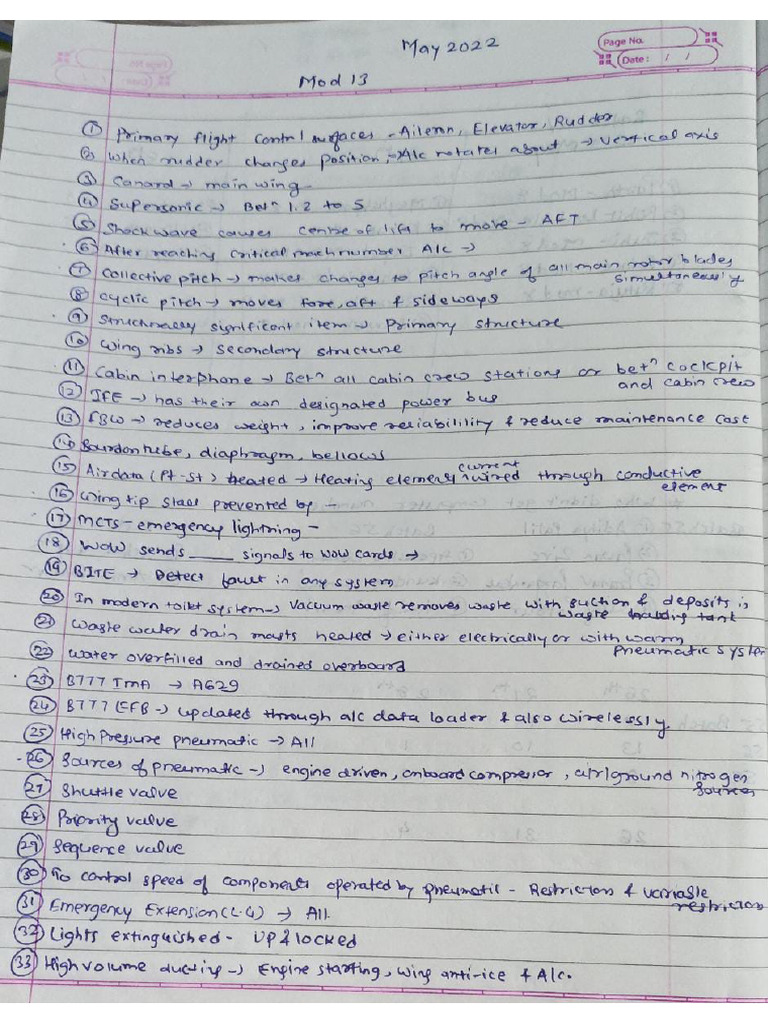 May 2022
Page No.
Date: / /
Mod 13
① Primary flight control surfaces - Aileron, Elevator, Rudder
② When rudder changes position, → A/c rotates about → vertical axis
③ Canard → main wing
④ Supersonic → Betⁿ 1.2 to 5
⑤ Shockwave causes centre of lift to move - AFT
⑥ After reaching critical mach number A/c →
⑦ Collective pitch → makes changes to pitch angle of all main rotor blades
simultaneously
⑧ cyclic pitch → moves fore, aft & sideways
⑨ Structurally significent item → Primary structure
⑩ Wing ribs → Secondary structure
⑪ Cabin interphone → Betⁿ all cabin crew stations or betⁿ cockpit
and cabin crew
⑫ IFE → has their own designated power bus
⑬ FBW → reduces weight, improve reliability & reduce maintenance cost
⑭ Bourdon tube, diaphragm, bellows
⑮ Air data (Pt-St) heated → Heating element current wired through conductive
element
⑯ Wing tip stall prevented by -
⑰ MCTS - emergency lightning -
⑱ WOW sends ____ signals to WOW cards →
⑲ BITE → Detect fault in any system
⑳ In modern toilet system → Vacuum waste removes waste with suction & deposits in
waste holding tank
㉑ Waste water drain masts heated → either electrically or with warm
pneumatic system
㉒ Water overfilled and drained overboard
㉓ B777 IMA → A629
㉔ B777 EFB → updated through a/c data loader & also wirelessly.
㉕ High Pressure pneumatic → All
㉖ Sources of pneumatic → engine driven, onboard compressor, air/ground nitrogen
sources
㉗ Shuttle valve
㉘ Priority valve
㉙ Sequence valve
㉚ To control speed of components operated by pneumatic - Restrictors & variable
restrictors
㉛ Emergency Extension (L.G) → All.
㉜ Lights extinguished - UP & locked
㉝ High volume ducting → Engine starting, wing anti-ice & A/c.